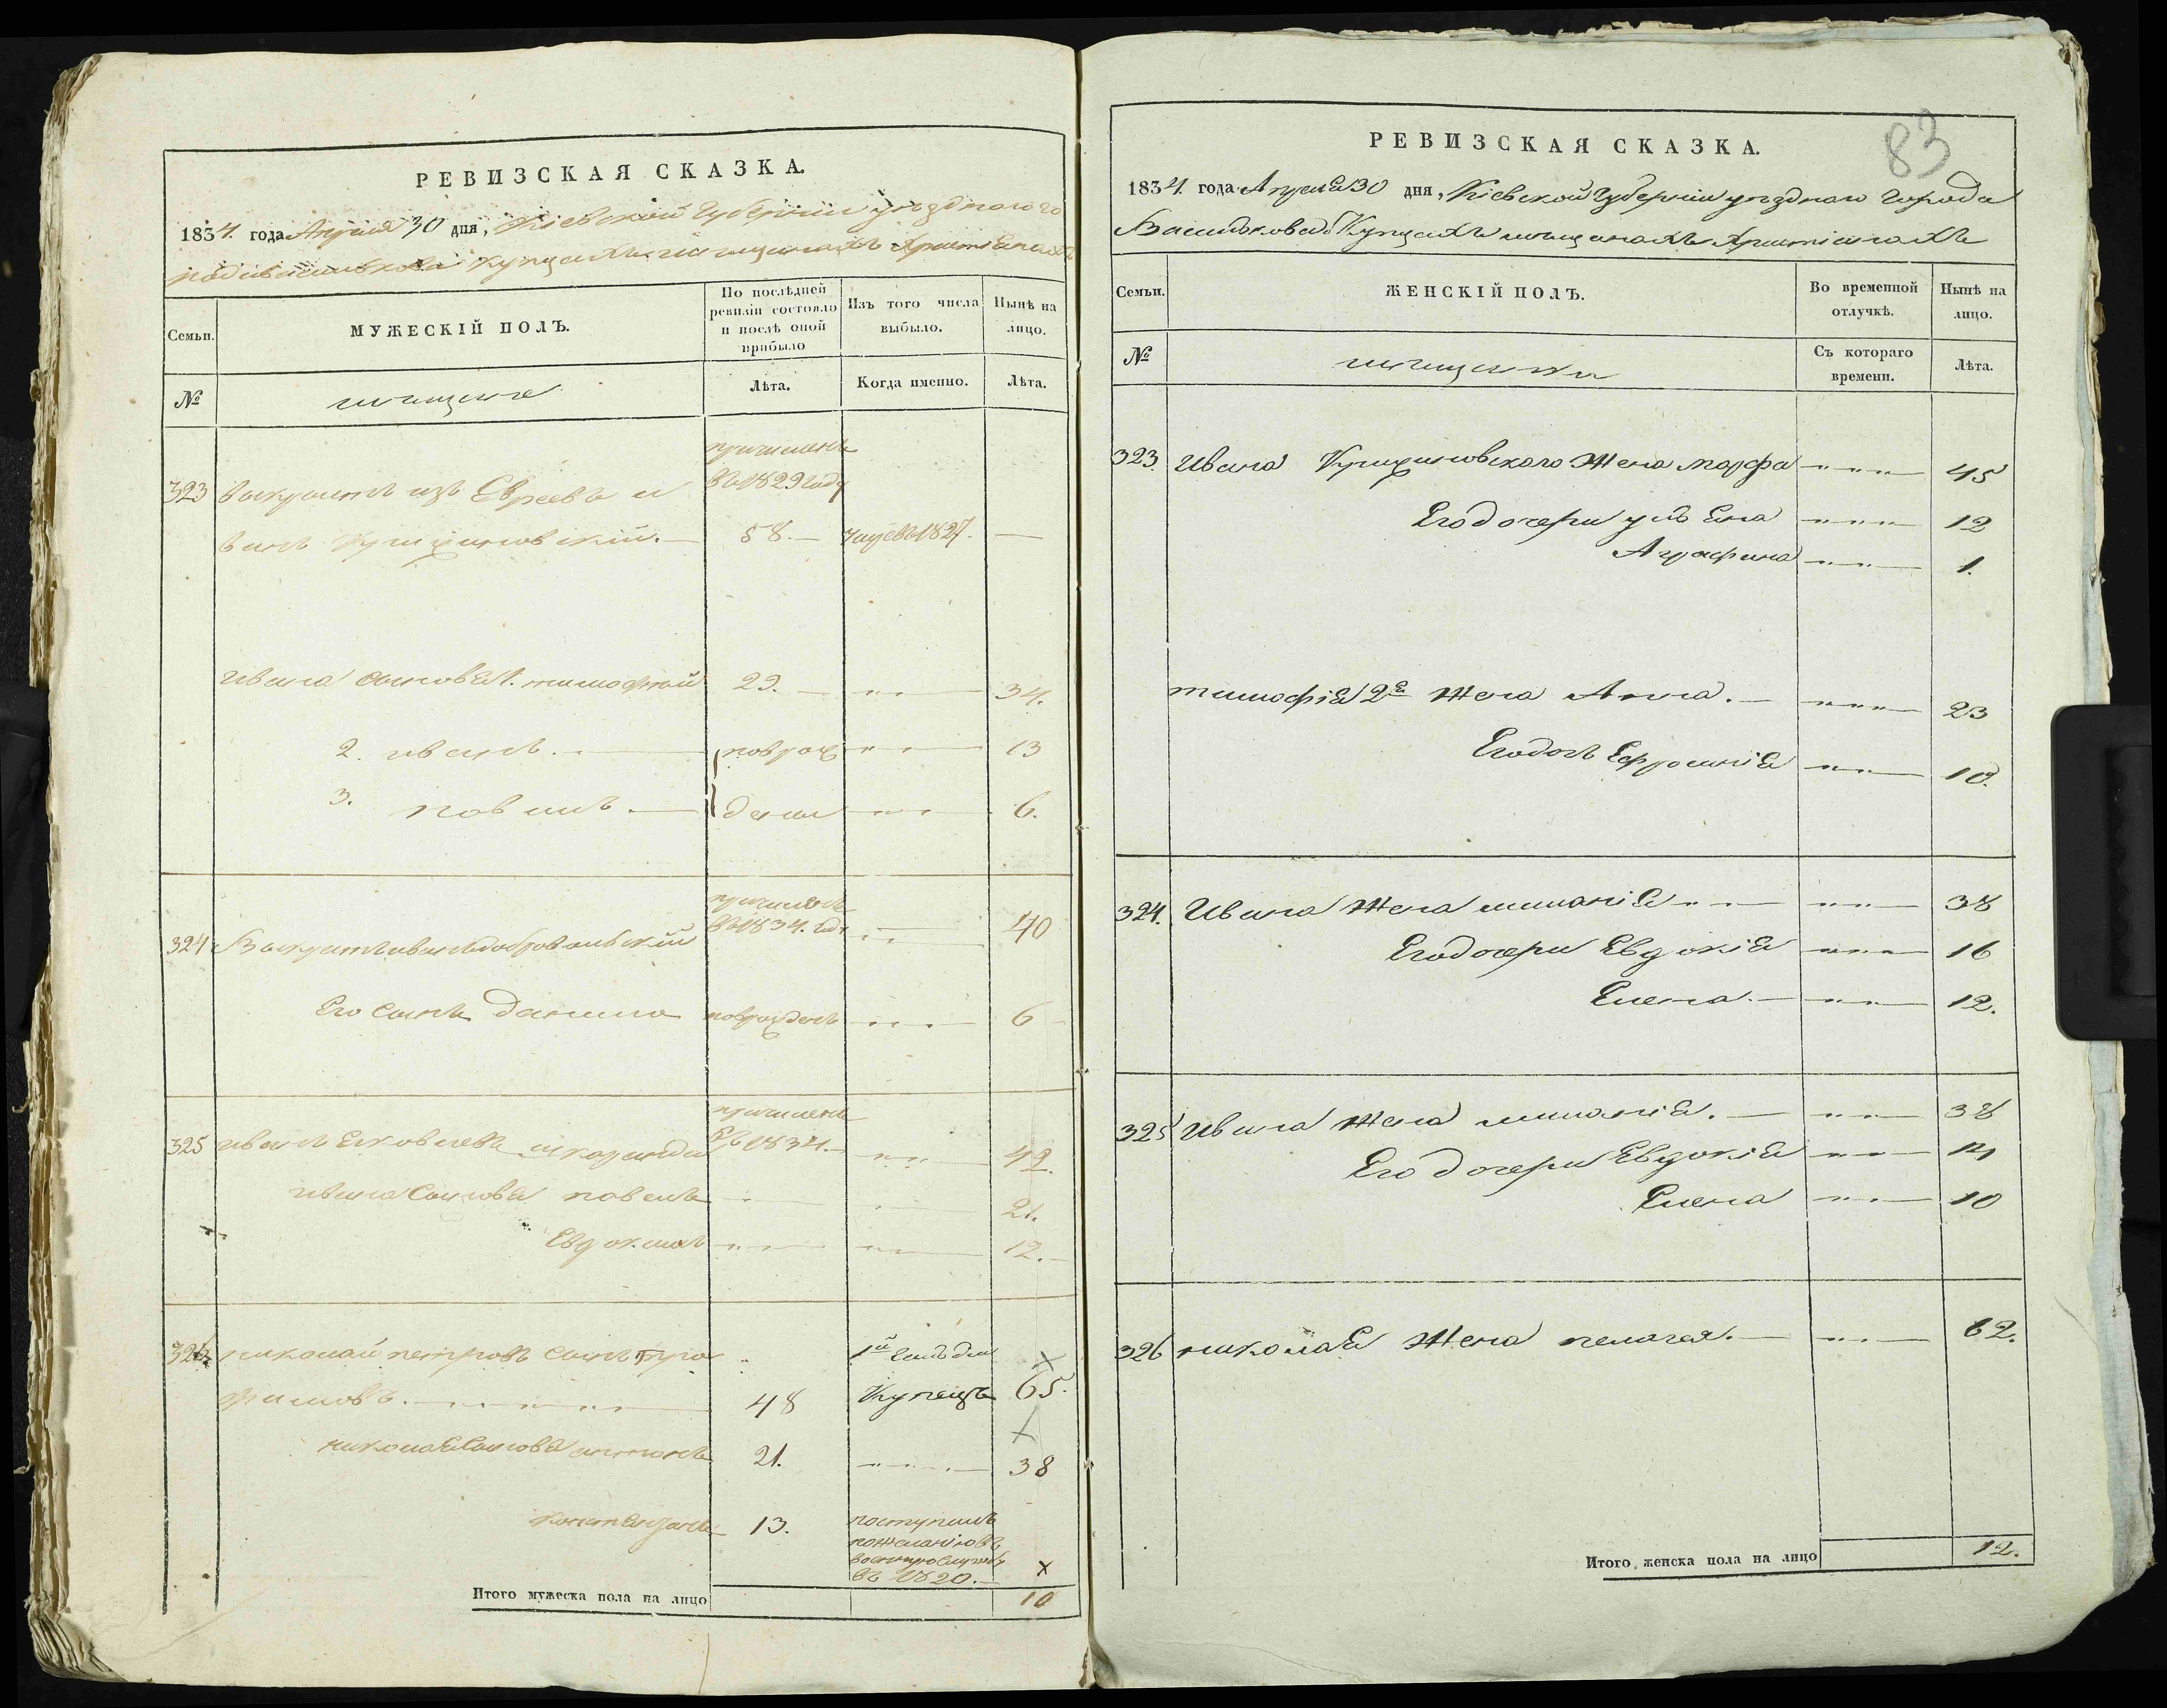 РЕВИЗСКАЯ СКАЗКА.
1834. года Апреля 30 дня, Кіевской Губерніи уезднаго го
рода Василькова Купцахъ мещанахъ Христіанахъ
Семьи.
МУЖЕСКІЙ ПОЛЪ.
По послѣдней ревизіи состояло и послѣ оной прибыло
Изъ того числа выбыло.
Нынѣ на лицо.
№
мещане
Лѣта.
Когда именно.
Лѣта.
причисленъ
въ 1829 году
323 Выкрестъ изъ Евреевъ и
ванъ 58. — умре въ 1827. —
Ивана сыновья 1. тимофей 29. — 34.
2. иванъ. поврож 13
3. павелъ дены 6.
причисленъ
въ 1834. год
324 Выкрестъ иванъ добровольскій 40
Его Сынъ данило новрожденъ 6
причисленъ
325 иванъ Яковлевъ въ 1834. — 42.
ивана Сыновья павелъ 21.
Евдокимъ 12. —
326 николай петровъ сынъ Тро 1й Гильдіи х
фимовъ. 48 Купецъ 65.
х
николая Сыновья антонъ 21. 38
констенцынъ 13. поступилъ
по желанію въ
военную службу
въ 1820. — х
Итого мужеска пола на лицо 10
83
РЕВИЗСКАЯ СКАЗКА.
1834. года Апреля 30 дня, Кіевской Губерніи уезднаго Города
Василькова Купцахъ мещанахъ Христіанахъ
Семьи.
ЖЕНСКІЙ ПОЛЪ.
Во временной отлучкѣ.
Нынѣ на лицо.
№
мещанки
Съ котораго времени.
Лѣта.
323. Ивана Жена Марфа 45
Его дочери 12
Аграфина 1.
тимофія 2я Жена Анна. 23
Его дочь Ефросинія 10.
324. Ивана Жена меланія 38
Его дочери Евдокія 16
Елена. 12.
325 Ивана Жена меланія. 38
Его дочери Евдокія 14
Елена 10
326 николая Жена пелагея. 62.
Итого женска пола на лицо 12.